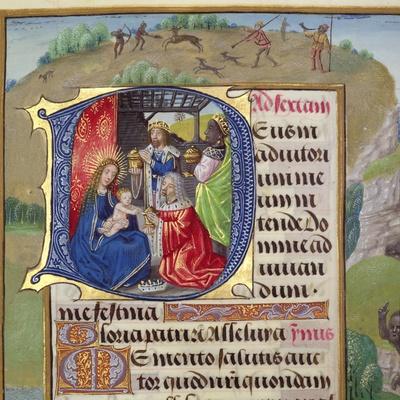 Ad sextam
Deus in
adiutori
um me
um in
tende Do
mine ad
iuuan
dum.
me festina
Gloria patri Alleluya ymnus
Memento salutis auc
tor quod nr̄i quondam